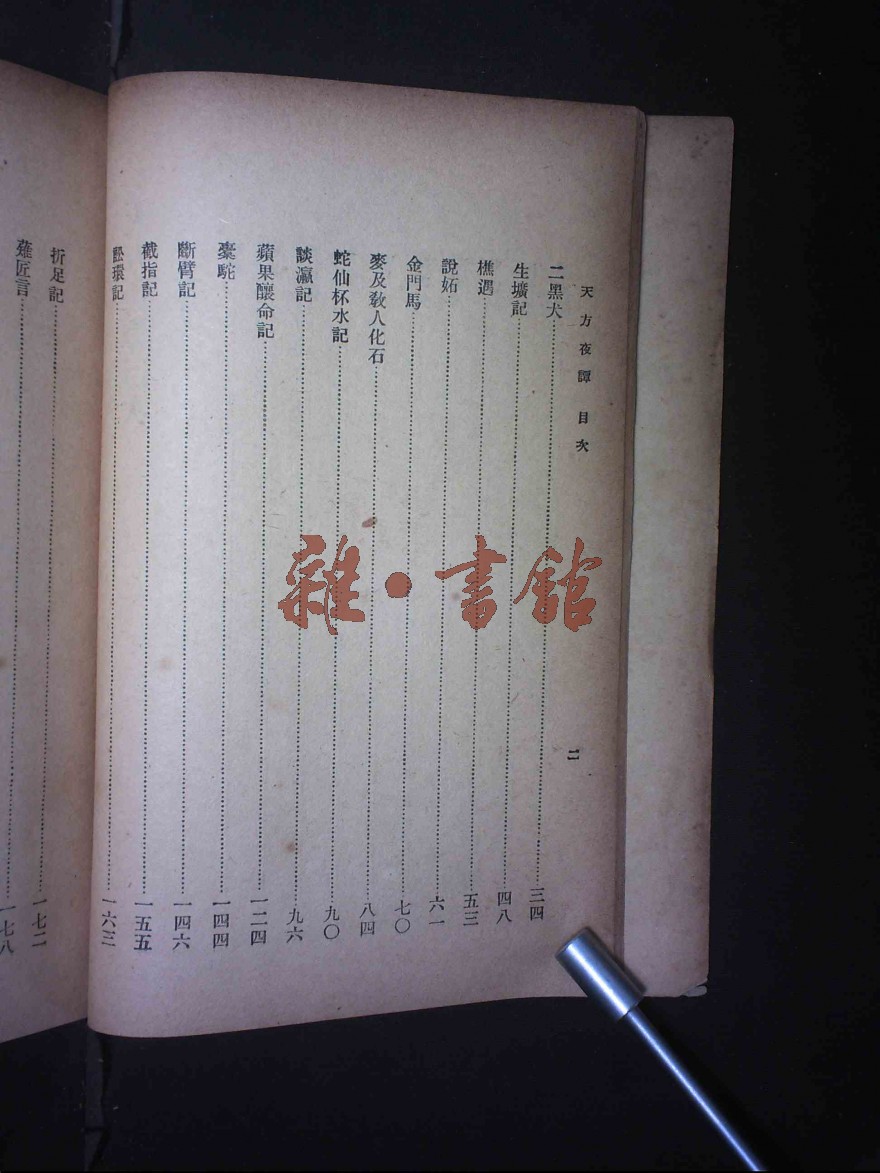 天方夜譚 目次
二
二黑犬……三四
生壙記……四八
樵遇……五三
說妬……六一
金門馬……七〇
麥及敎人化石……八四
蛇仙杯水記……九〇
談瀛記……九六
蘋果釀命記……一二四
橐駝……一四四
斷臂記……一四六
截指記……一五五
訟環記……一六三
折足記……一七二
薙匠言……一七八
雜·書館